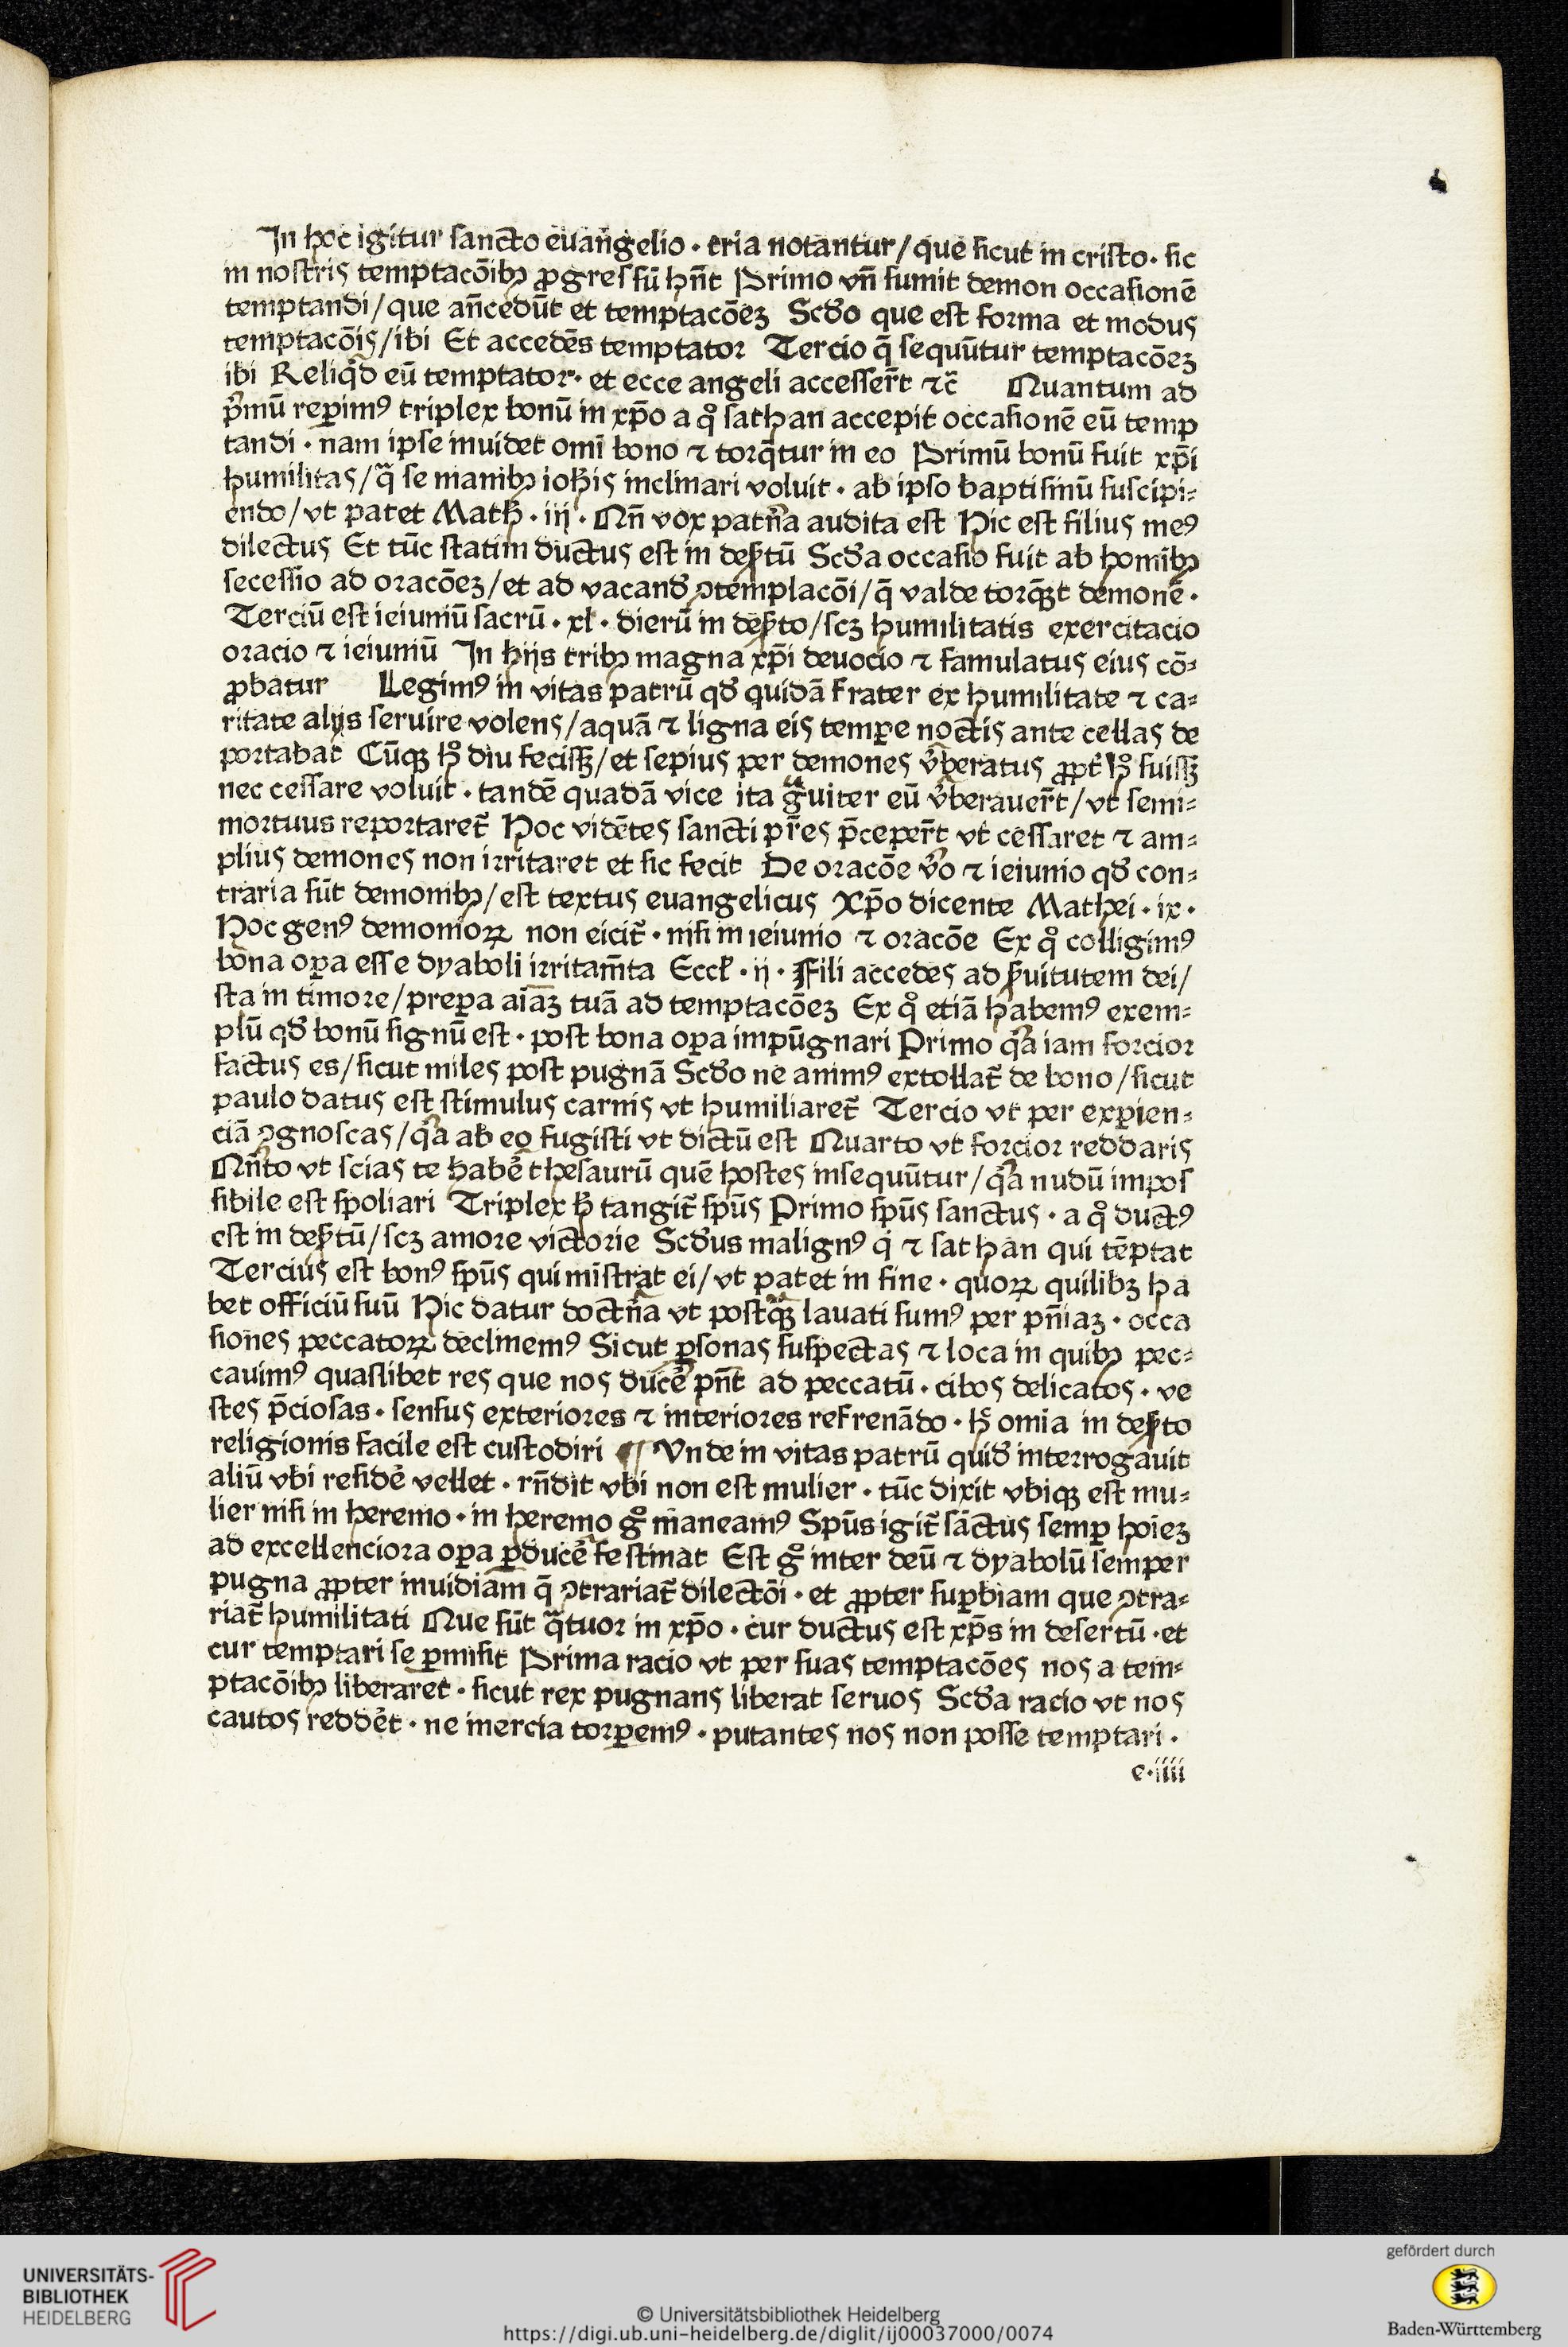 In hoc igitur sancto euangelio · tria notantur / que sicut in cristo · sic
in nostris temptacōibꝫ ꝓgressū hn̄t Primo vn̄ sumit demon occasionē
temptandi / que an̄cedūt et temptacōeꝫ Scd̓o que est forma et modus
temptacōis / ibi Et accedēs temptator Tercio q̄ sequūtur temptacōeꝫ
ibi Reliq̓d eū temptator · et ecce angeli accesser̄t ⁊c̄ Quantum ad
p̓mū reꝑimꝰ triplex bonū in xp̄o a qͦ sathan accepit occasionē eū temp
tandi · nam ipse inuidet omī bono ⁊ torq̄tur in eo Primū bonū fuit xp̄i
humilitas / qͣ se manibꝫ ioh̄is inclinari voluit · ab ipso baptismū suscipi⸗
endo / vt patet Math̓ · iij · Qn̄ vox patn̓a audita est Hic est filius meꝰ
dilectus Et tūc statim ductus est in des̓tū Scd̓a occasio fuit ab homībꝫ
secessio ad oracōeꝫ / et ad vacand̓ ↄtemplacōi / q̄ valde torqꝫt demonē ·
Terciū est ieiuniū sacrū · xl · dierū in des̓to / scꝫ humilitatis exercitacio
oracio ⁊ ieiuniū In hijs tribꝫ magna xp̄i deuocio ⁊ famulatus eius cō⸗
ꝓbatur Legimꝰ in vitas patrū qd̓ quidā frater ex humilitate ⁊ ca⸗
ritate alijs seruire volens / aquā ⁊ ligna eis temꝑe noctis ante cellas de
portabat Cūqꝫ hͦ diu fecissꝫ / et sepius per demones v̓beratus ꝓpt̓ hͦ fuissꝫ
nec cessare voluit · tandē quadā vice ita gͣuiter eū v̓berauer̄t / vt semi⸗
mortuus reportaret̄ Hoc vidētes sancti pr̄es p̄ceper̄t vt cessaret ⁊ am⸗
plius demones non irritaret et sic fecit De oracōe v̓o ⁊ ieiunio qd̓ con⸗
traria sūt demonibꝫ / est textus euangelicus Xp̄o dicente Mathei · ix ·
Hoc genꝰ demonioꝝ non eicit̄ · nisi in ieiunio ⁊ oracōe Ex qͦ colligimꝰ
bona oꝑa esse dyaboli irritam̄ta Eccl̓ · ij · Fili accedes ad s̓uitutem dei /
sta in timore / preꝑa aīaꝫ tuā ad temptacōeꝫ Ex qͦ etiā habemꝰ exem⸗
plū qd̓ bonū signū est · post bona oꝑa impūgnari Primo q̓a iam forcior
factus es / sicut miles post pugnā Scd̓o ne animꝰ extollat̄ de bono / sicut
paulo datus est stimulus carnis vt humiliaret̄ Tercio vt per exꝑien⸗
ciā ↄgnoscas / q̓a ab eo fugisti vt dictū est Quarto vt forcior reddaris
Qn̓to vt scias te habe̓ thesaurū quē hostes insequūtur / q̓a nudū impos
sibile est spoliari Triplex h̓ tangit̄ sp̄us Primo sp̄us sanctus · a qͦ ductꝰ
est in des̓tū / scꝫ amore victorie Scd̓us malignꝰ q̓ ⁊ sathan qui tēptat
Tercius est bonꝰ sp̄us qui mīstrat ei / vt patet in fine · quoꝝ quilibꝫ ha
bet officiū suū Hic datur doctn̓a vt postqͣꝫ lauati sumꝰ per pn̄iaꝫ · occa
siones peccatoꝝ declinemꝰ Sicut ꝑsonas suspectas ⁊ loca in quibꝫ pec⸗
cauimꝰ quaslibet res que nos duce̓ pn̄t ad peccatū · cibos delicatos · ve
stes p̄ciosas · sensus exteriores ⁊ interiores refrenādo · hͨ omia in des̓to
religionis facile est custodiri ¶ Vnde in vitas patrū quid̓ interrogauit
aliū vbi reside̓ vellet · rn̄dit vbi non est mulier · tūc dixit vbiqꝫ est mu⸗
lier nisi in heremo · in heremo gͦ maneamꝰ Sp̄us igit̄ sāctus semꝑ hoīeꝫ
ad excellenciora oꝑa ꝑduce̓ festinat Est gͦ inter deū ⁊ dyabolū semper
pugna ꝓpter inuidiam q̄ ↄtrariat̄ dilectōi · et ꝓpter suꝑbiam que ↄtra⸗
riat̄ humilitati Que sūt qͣtuor in xp̄o · cur ductus est xp̄s in desertū · et
cur temptari se ꝑmisit Prima racio vt per suas temptacōes nos a tem⸗
ptacōibꝫ liberaret · sicut rex pugnans liberat seruos Scd̓a racio vt nos
cautos redde̓t · ne inercia torꝑemꝰ · putantes nos non posse temptari ·
e·iiii
UNIVERSITÄTS-
BIBLIOTHEK
HEIDELBERG
© Universitätsbibliothek Heidelberg
https://digi.ub.uni-heidelberg.de/diglit/ij00037000/0074
gefördert durch
Baden-Württemberg